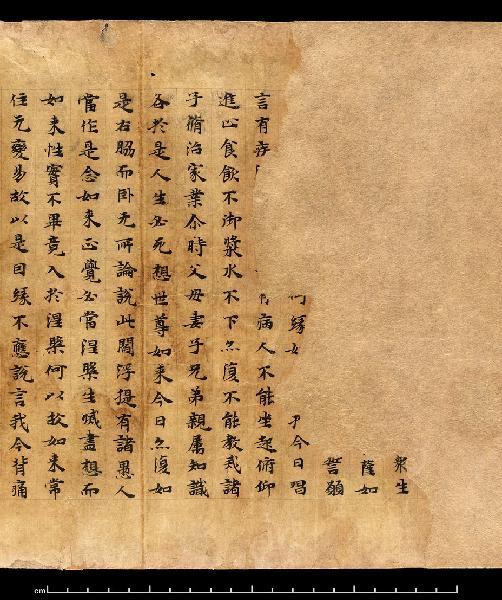 衆生
薩如
誓願
何緣 今日唱
言有疾 病人不能坐起俯仰
進止食飲不御漿水不下亦復不能教戒諸
子脩治家業尒時父母妻子兄弟親屬知識
各於是人生必死想世尊如来今日亦復如
是右脇而卧无所論說此閻浮提有諸愚人
當作是念如来正覺必當涅槃生滅盡想而
如来性實不畢竟入於涅槃何以故如来常
住无變易故以是因緣不應說言我今背痛
cm